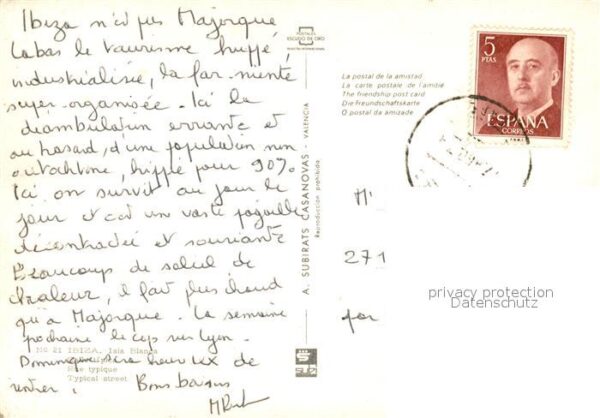 Ibiza n'est pas Majorque
Là bas le tourisme huppé,
industrialisé, la farniente
super-organisée. Ici la
déambulation errante et
au hasard, d'une population non
autochtone, hippie pour 90%
Ici on survit au jour le
jour et c'est un vaste pagaille
décentralisée et souriante
Beaucoup de soleil de
chaleur, il fait plus chaud
qu'à Majorque. La semaine
prochaine le cap sur Lyon.
Dominique sera heureux de
rentrer. Bons baisers
No 21 IBIZA. Isla Blanca
Rue typique
Typical street
POSTALES
ESCUDO DE ORO
A. SUBIRATS CASANOVAS - VALENCIA
Reproducción prohibida
La postal de la amistad
La carte postale de l'amitié
The friendship post card
Die Freundschaftskarte
O postal da amizade
5
PTAS
ESPAÑA
CORREOS
M'
271
for
privacy protection
Datenschutz